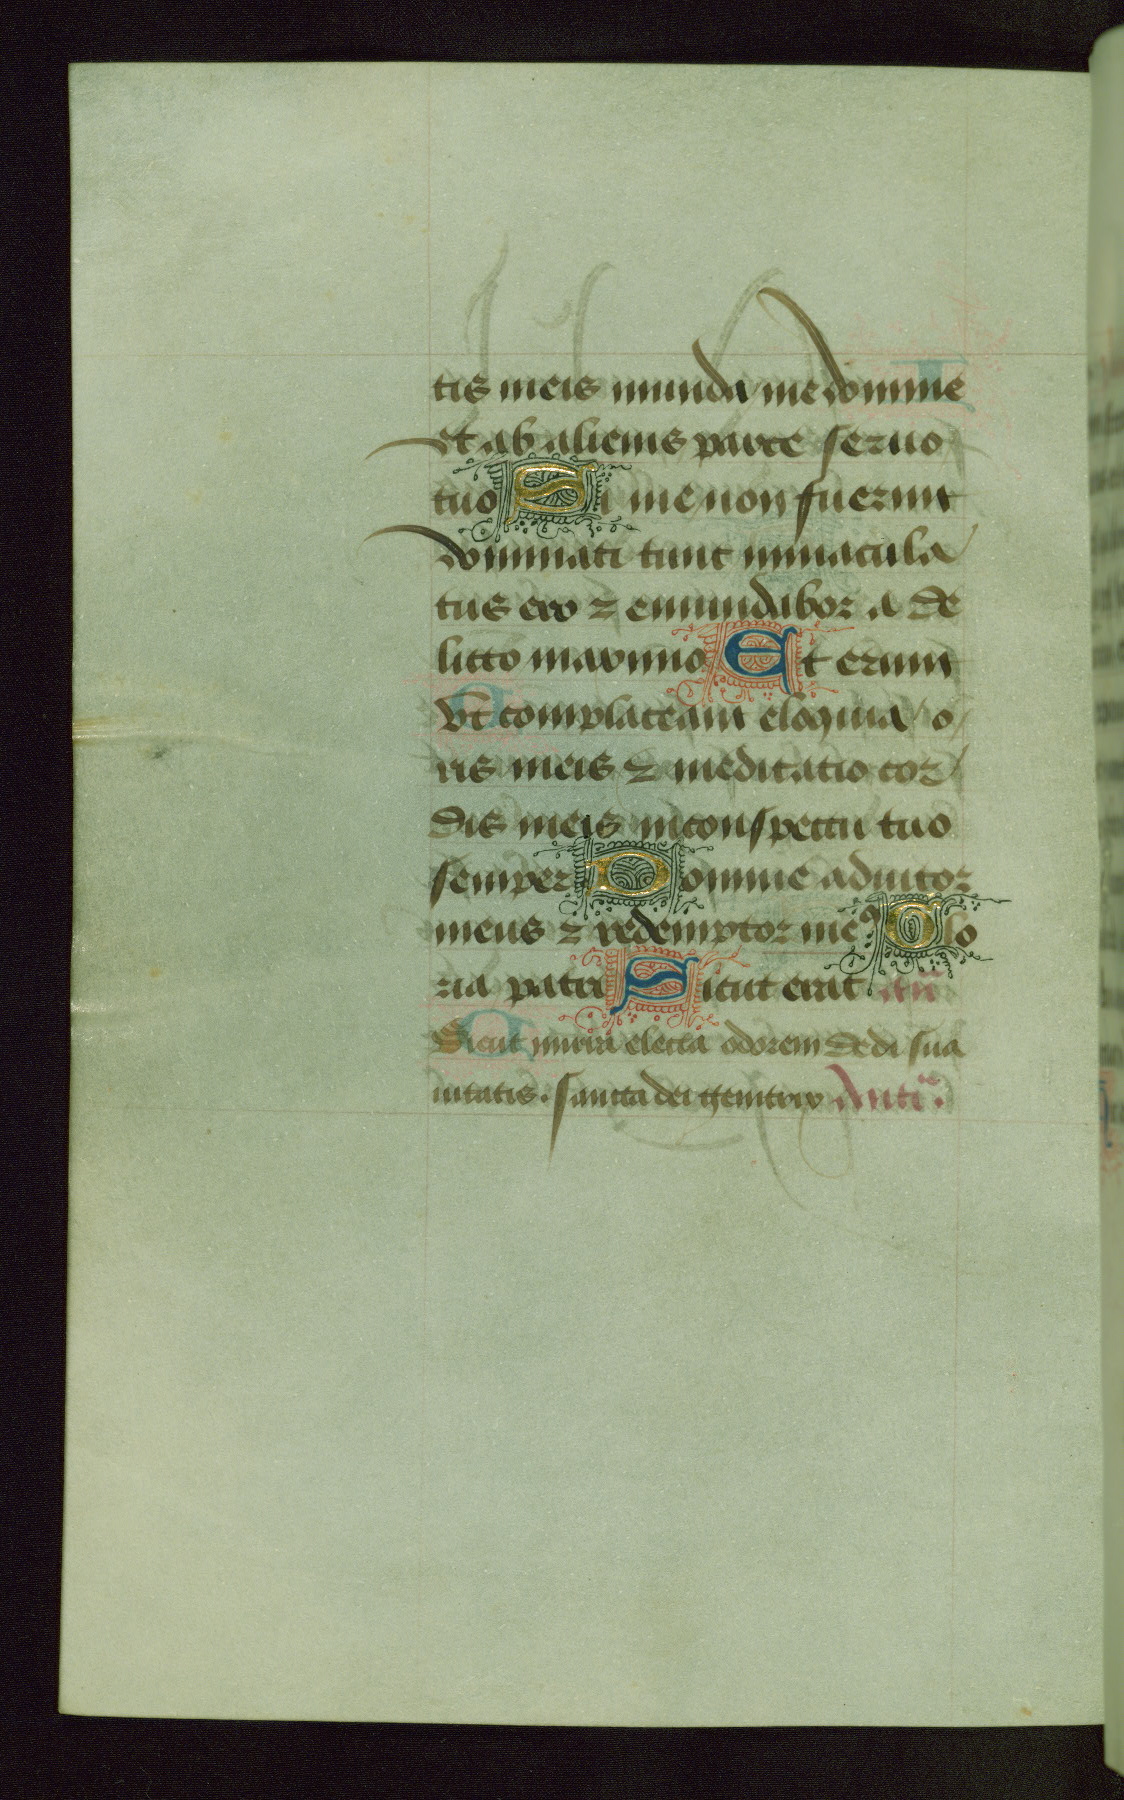 tis meis munda me domine
et ab alienis parce seruo
tuo Si me non fuerint
dominati tunc immacula
tus ero ⁊ emundabor a de
licto maximo Et erunt
vt complaceant eloquia o
ris meis ⁊ meditatio cor
dis meis in conspectu tuo
semper Domine adiutor
meus ⁊ redemptor meꝰ Glo
ria patri Sicut erat an
Sicut mirra electa odorem dedi sua
uitatis. sancta dei genitrix Antiᵃ.